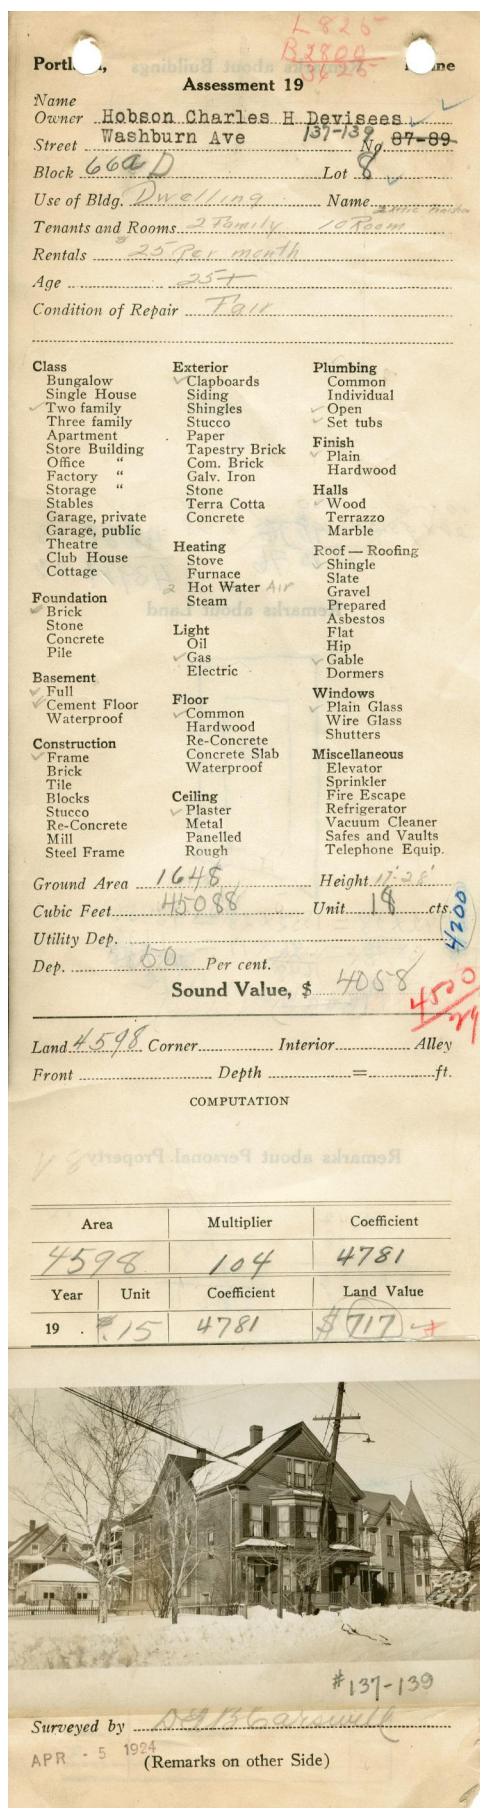 L 825
B 2800
3625
Portland, Maine
Assessment 19
Name
Owner Hobson Charles H Devisees
Street Washburn Ave 137-139 No. 87-89
Block 66a D Lot 8
Use of Bldg. Dwelling Name
Tenants and Rooms 2 Family 10 Room 2 Attic Finished
Rentals $25 Per month
Age 25+
Condition of Repair Fair
Class
Bungalow
Single House
Two family
Three family
Apartment
Store Building
Office "
Factory "
Storage "
Stables
Garage, private
Garage, public
Theatre
Club House
Cottage
Foundation
Brick
Stone
Concrete
Pile
Basement
Full
Cement Floor
Waterproof
Construction
Frame
Brick
Tile
Blocks
Stucco
Re-Concrete
Mill
Steel Frame
Exterior
Clapboards
Siding
Shingles
Stucco
Paper
Tapestry Brick
Com. Brick
Galv. Iron
Stone
Terra Cotta
Concrete
Heating
Stove
Furnace
2 Hot Water Air
Steam
Light
Oil
Gas
Electric
Floor
Common
Hardwood
Re-Concrete
Concrete Slab
Waterproof
Ceiling
Plaster
Metal
Panelled
Rough
Plumbing
Common
Individual
Open
Set tubs
Finish
Plain
Hardwood
Halls
Wood
Terrazzo
Marble
Roof — Roofing
Shingle
Slate
Gravel
Prepared
Asbestos
Flat
Hip
Gable
Dormers
Windows
Plain Glass
Wire Glass
Shutters
Miscellaneous
Elevator
Sprinkler
Fire Escape
Refrigerator
Vacuum Cleaner
Safes and Vaults
Telephone Equip.
Ground Area 1648 Height 17'-28'
Cubic Feet 45088 Unit 18 cts.
4200
Utility Dep.
Dep. 50 Per cent.
Sound Value, $ 4058
4500
Land 4598 Corner Interior Alley
Front Depth = ft.
COMPUTATION
Area Multiplier Coefficient
4598 104 4781
Year Unit Coefficient Land Value
19 $.15 4781 $717
#137-139
Surveyed by Carswell
APR - 5 1924
(Remarks on other Side)